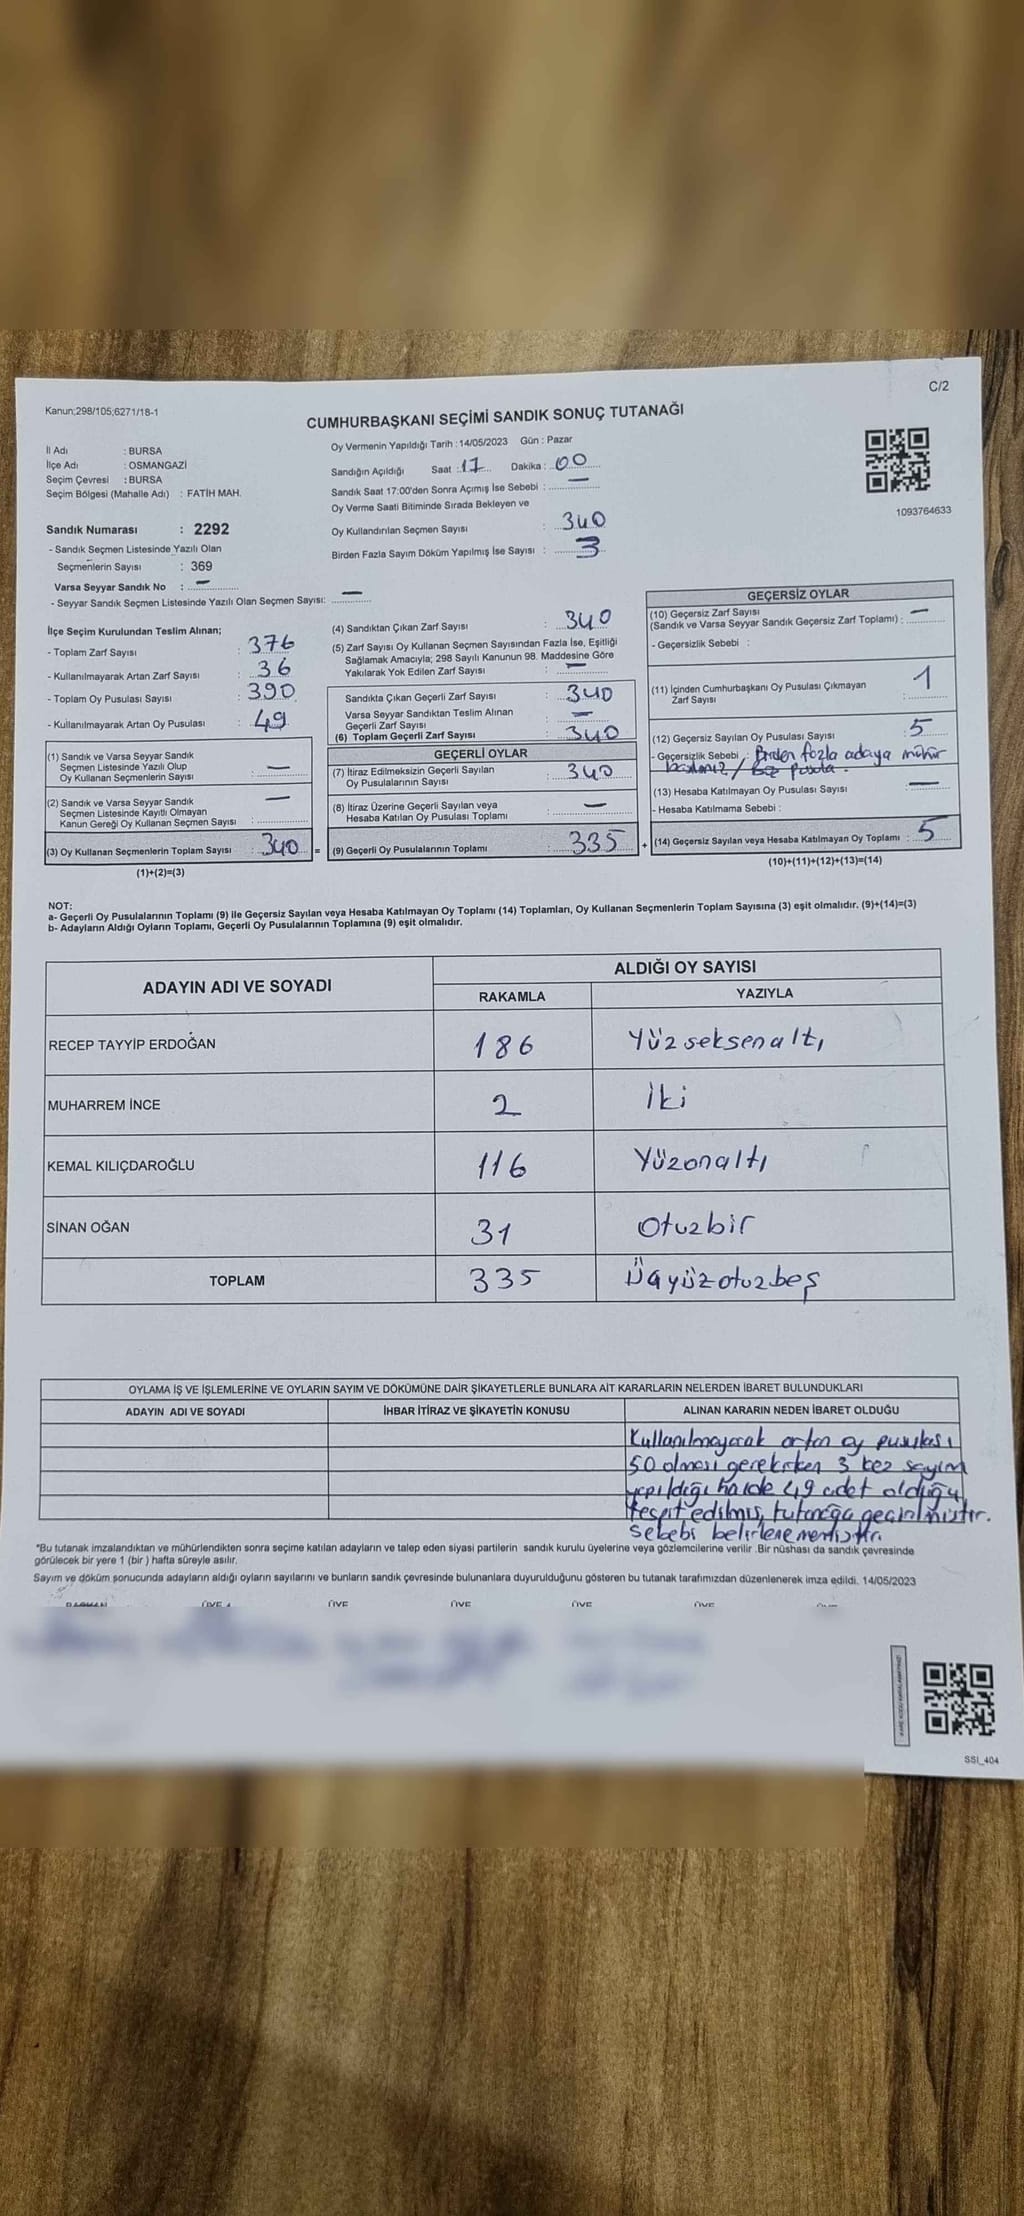 C/2
Kanun;298/105;6271/18-1
CUMHURBAŞKANI SEÇİMİ SANDIK SONUÇ TUTANAĞI
İl Adı : BURSA
İlçe Adı : OSMANGAZİ
Seçim Çevresi : BURSA
Seçim Bölgesi (Mahalle Adı) : FATİH MAH.
Sandık Numarası : 2292
- Sandık Seçmen Listesinde Yazılı Olan
Seçmenlerin Sayısı : 369
Varsa Seyyar Sandık No : —
- Seyyar Sandık Seçmen Listesinde Yazılı Olan Seçmen Sayısı: —
Oy Vermenin Yapıldığı Tarih : 14/05/2023 Gün : Pazar
Sandığın Açıldığı Saat : 17 Dakika : 00
Sandık Saat 17:00'den Sonra Açımış İse Sebebi : —
Oy Verme Saati Bitiminde Sırada Bekleyen ve
Oy Kullandırılan Seçmen Sayısı : 340
Birden Fazla Sayım Döküm Yapılmış İse Sayısı : 3
1093764633
İlçe Seçim Kurulundan Teslim Alınan;
- Toplam Zarf Sayısı : 376
- Kullanılmayarak Artan Zarf Sayısı : 36
- Toplam Oy Pusulası Sayısı : 390
- Kullanılmayarak Artan Oy Pusulası : 49
(1) Sandık ve Varsa Seyyar Sandık
Seçmen Listesinde Yazılı Olup
Oy Kullanan Seçmenlerin Sayısı : —
(2) Sandık ve Varsa Seyyar Sandık
Seçmen Listesinde Kayıtlı Olmayan
Kanun Gereği Oy Kullanan Seçmen Sayısı : —
(3) Oy Kullanan Seçmenlerin Toplam Sayısı : 340 =
(1)+(2)=(3)
(4) Sandıktan Çıkan Zarf Sayısı : 340
(5) Zarf Sayısı Oy Kullanan Seçmen Sayısından Fazla İse, Eşitliği
Sağlamak Amacıyla; 298 Sayılı Kanunun 98. Maddesine Göre
Yakılarak Yok Edilen Zarf Sayısı : —
Sandıkta Çıkan Geçerli Zarf Sayısı : 340
Varsa Seyyar Sandıktan Teslim Alınan
Geçerli Zarf Sayısı : —
(6) Toplam Geçerli Zarf Sayısı : 340
GEÇERLİ OYLAR
(7) İtiraz Edilmeksizin Geçerli Sayılan
Oy Pusulalarının Sayısı : 340
(8) İtiraz Üzerine Geçerli Sayılan veya
Hesaba Katılan Oy Pusulası Toplamı : —
(9) Geçerli Oy Pusulalarının Toplamı : 335 +
GEÇERSİZ OYLAR
(10) Geçersiz Zarf Sayısı
(Sandık ve Varsa Seyyar Sandık Geçersiz Zarf Toplamı) : —
- Geçersizlik Sebebi :
(11) İçinden Cumhurbaşkanı Oy Pusulası Çıkmayan
Zarf Sayısı : 1
(12) Geçersiz Sayılan Oy Pusulası Sayısı : 5
- Geçersizlik Sebebi : Birden fazla adaya mühür
basılmış / Boş pusula.
(13) Hesaba Katılmayan Oy Pusulası Sayısı : —
- Hesaba Katılmama Sebebi :
(14) Geçersiz Sayılan veya Hesaba Katılmayan Oy Toplamı : 5
(10)+(11)+(12)+(13)=(14)
NOT:
a- Geçerli Oy Pusulalarının Toplamı (9) ile Geçersiz Sayılan veya Hesaba Katılmayan Oy Toplamı (14) Toplamları, Oy Kullanan Seçmenlerin Toplam Sayısına (3) eşit olmalıdır. (9)+(14)=(3)
b- Adayların Aldığı Oyların Toplamı, Geçerli Oy Pusulalarının Toplamına (9) eşit olmalıdır.
ADAYIN ADI VE SOYADI
ALDIĞI OY SAYISI
RAKAMLA YAZIYLA
RECEP TAYYİP ERDOĞAN 186 Yüzseksenaltı
MUHARREM İNCE 2 İki
KEMAL KILIÇDAROĞLU 116 Yüzonaltı
SİNAN OĞAN 31 Otuzbir
TOPLAM 335 Üçyüzotuzbeş
OYLAMA İŞ VE İŞLEMLERİNE VE OYLARIN SAYIM VE DÖKÜMÜNE DAİR ŞİKAYETLERLE BUNLARA AİT KARARLARIN NELERDEN İBARET BULUNDUKLARI
ADAYIN ADI VE SOYADI İHBAR İTİRAZ VE ŞİKAYETİN KONUSU ALINAN KARARIN NEDEN İBARET OLDUĞU
Kullanılmayarak artan oy pusulası
50 olması gerekirken 3 kez sayım
yapıldığı halde 49 adet olduğu
tespit edilmiş, tutanağa geçirilmiştir.
Sebebi belirlenememiştir.
*Bu tutanak imzalandıktan ve mühürlendikten sonra seçime katılan adayların ve talep eden siyasi partilerin sandık kurulu üyelerine veya gözlemcilerine verilir .Bir nüshası da sandık çevresinde
görülecek bir yere 1 (bir ) hafta süreyle asılır.
Sayım ve döküm sonucunda adayların aldığı oyların sayılarını ve bunların sandık çevresinde bulunanlara duyurulduğunu gösteren bu tutanak tarafımızdan düzenlenerek imza edildi. 14/05/2023
BAŞKAN ÜYE ÜYE ÜYE ÜYE ÜYE
SSI_404